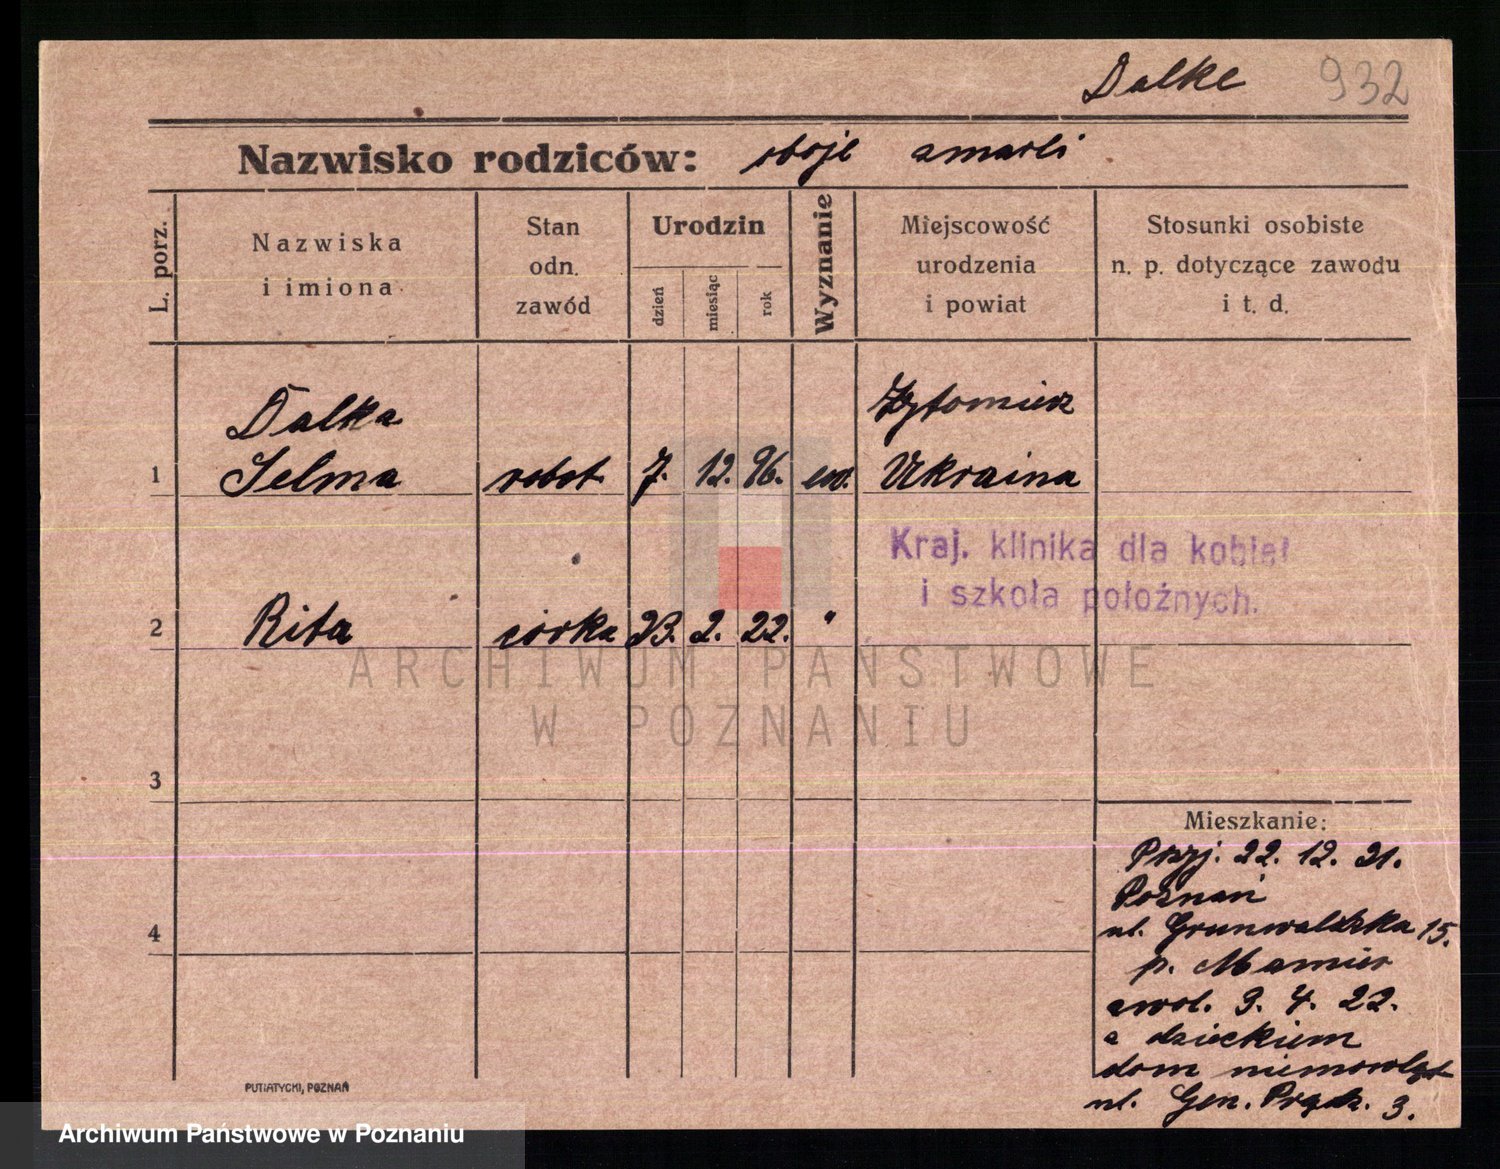 Dalke 932
Nazwisko rodziców: oboje zmarli
L. porz.
Nazwiska
i imiona
Stan
odn.
zawód
Urodzin
dzień
miesiąc
rok
Wyznanie
Miejscowość
urodzenia
i powiat
Stosunki osobiste
n. p. dotyczące zawodu
i t. d.
Dalka Żytomierz
1 Selma robot. 7. 12. 96. ew. Ukraina
Kraj. klinika dla kobiet
i szkoła położnych.
2 Rita córka 23. 2. 22. "
ARCHIWUM PAŃSTWOWE
W POZNANIU
3
4
Mieszkanie:
Przyj. 22. 12. 21.
Poznań
ul. Grunwaldzka 15.
p.
zwol. 3. 4. 22.
z dzieckiem
dom niemowląt
ul. Gen. Prądz. 3.
PUTIATYCKI, POZNAŃ
Archiwum Państwowe w Poznaniu